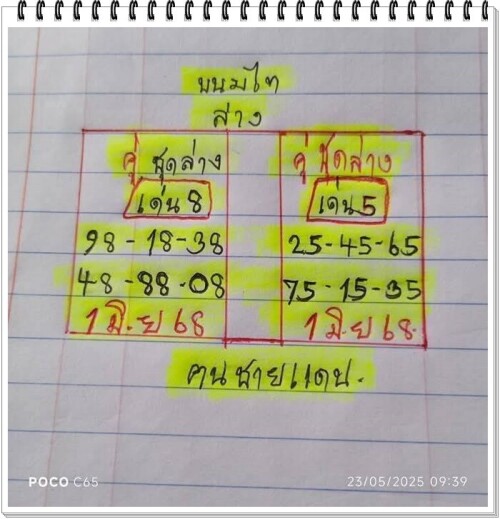 ขนมไท
ล่าง
คู่ ชุดล่าง
เด่น 8
98-18-38
48-88-08
1 มิ.ย 68
คู่ ชุดล่าง
เด่น 5
25-45-65
75-15-35
1 มิ.ย 68
คนชายแดน.
POCO C65
23/05/2025 09:39